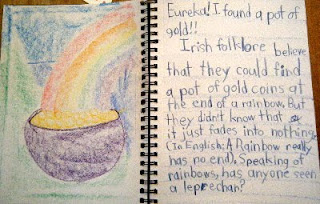 Eureka! I found a pot of
gold!!
Irish folklore believe
that they could find
a pot of gold coins at
the end of a rainbow. But
they didn't know that
it just fades into nothing.
(In English: A Rainbow really
has no end). Speaking of
rainbows, has anyone seen
a leprechan?